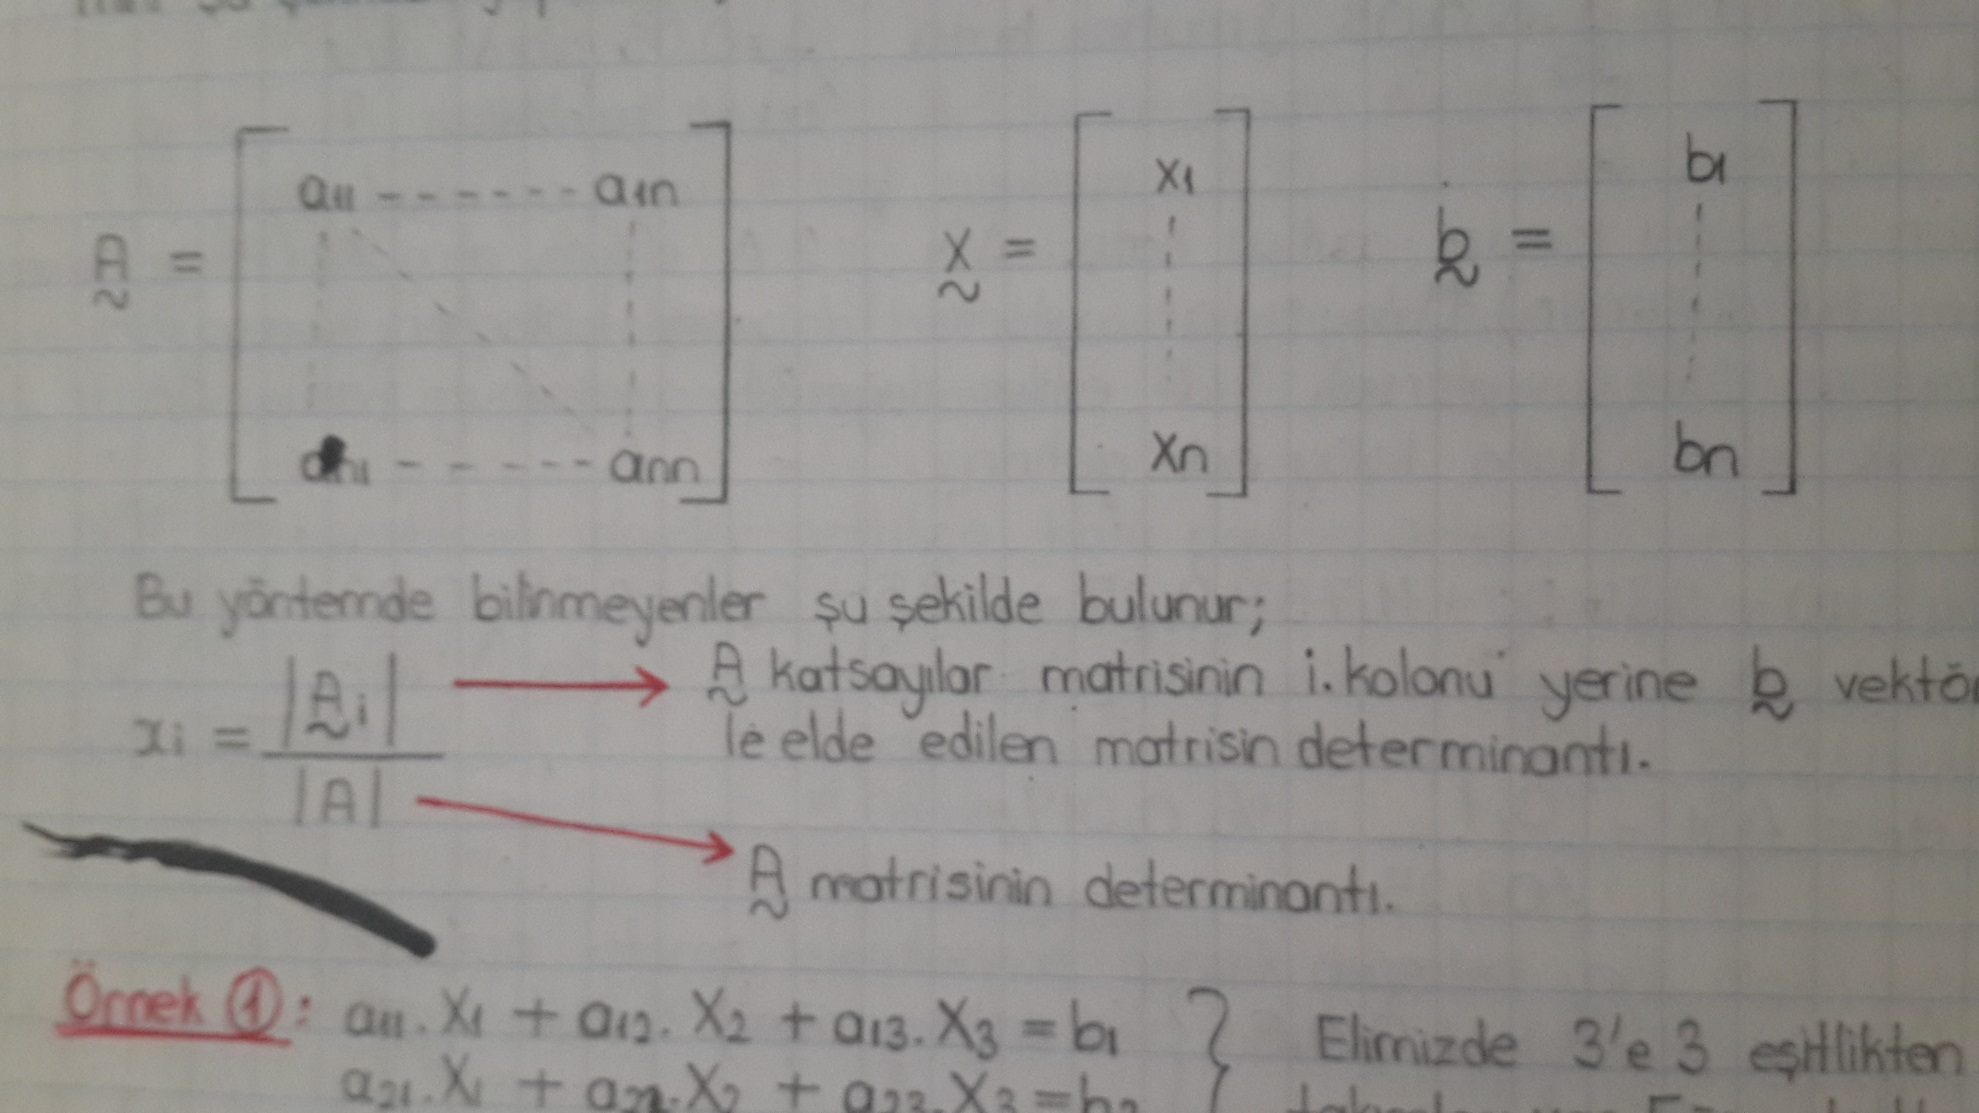 A = [ a11 ------ a1n
an1 ------ ann ]
X = [ x1
xn ]
b = [ b1
bn ]
Bu yöntemde bilinmeyenler şu şekilde bulunur;
xi = |Ai| / |A|
A katsayılar matrisinin i. kolonu yerine b
le elde edilen matrisin determinantı.
A matrisinin determinantı.
Örnek 1: a11.X1 + a12.X2 + a13.X3 = b1 } Elimizde 3'e 3 eşitlikten
a21.X1 + a22.X2 + a23.X3 = b2